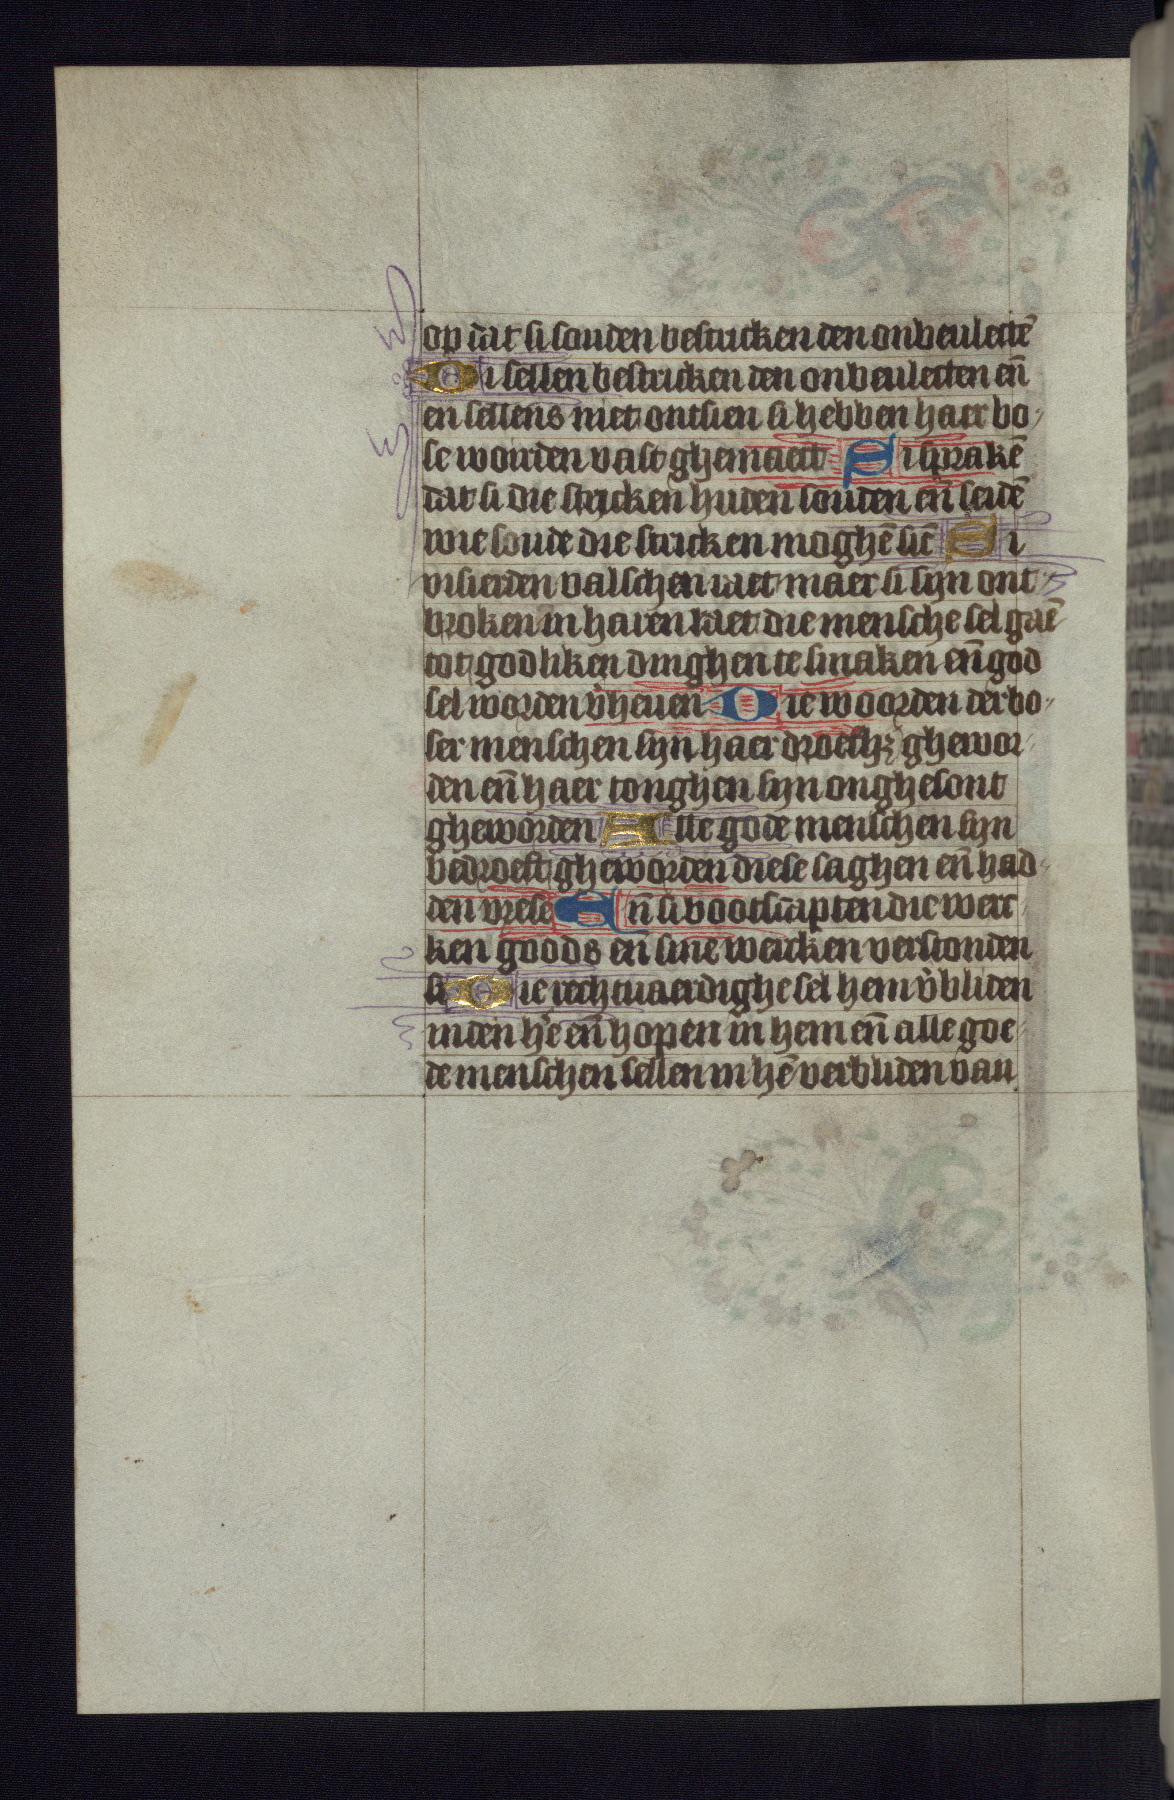 op dat si souden bestricken den onbeulectē
Si sellen bestricken den onbeulecten eñ
en sellens niet ontsien si hebben haer bo-
se woirden vast ghemaect Si sprakē
dat si die stricken huden souden eñ seidē
wie soude die stricken moghē siē Si
visierden valschen raet maer si sijn ont-
broken in haren raet die mensche sel gaē
tot godliken dinghen te smaken eñ god
sel worden v̄heuen Die woorden der bo-
ser menschen sijn haer droefhʒ ghewor-
den eñ haer tonghen sijn onghesont
gheworden Alle gode menschen sijn
bedroeft gheworden diese saghen eñ had-
den vrese Eñ si bootscapten die werc-
ken goods eñ sine wercken verstonden
si Die rechtuaerdighe sel hem v̄bliden
inden hē eñ hopen in hem eñ alle goe-
de menschen sellen in hē verbliden van